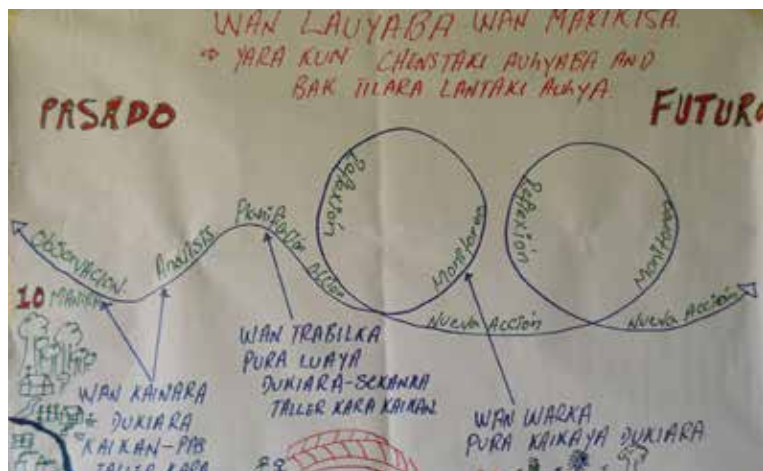 WAN LAUYABA WAN MAKIKISA.
⇒ YARA KUN CHENSTAKI AUHYABA AND
BAK TILARA LANTAKI AUHYA.
PASADO
FUTURO
OBSERVACION
Análisis
Planificación
Acción
Reflexión
Monitoreo
Nueva Acción
Reflexión
Monitoreo
Nueva Acción
10 MANKA
WAN KAINARA
DUKIARA
KAIKAN-PAB
TALLER KARA
WAN TRABILKA
PURA LUAYA
DUKIARA-SEKANKA
TALLER KARA KAIKAN.
WAN WARKA
PURA KAIKAYA DUKIARA